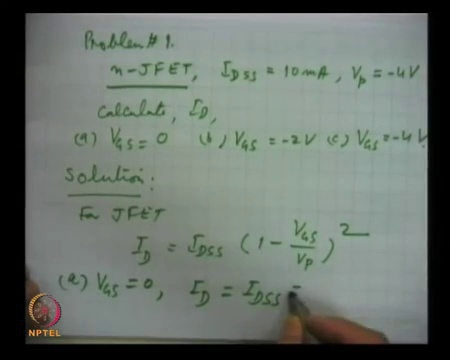 Problem # 1.
n-JFET, IDSS = 10mA, Vp = -4V
Calculate, ID,
(a) VGS = 0 (b) VGS = -2V (c) VGS = -4V.
Solution:
For JFET
ID = IDSS (1 - VGS/Vp)2
(a) VGS = 0, ID = IDSS =
NPTEL